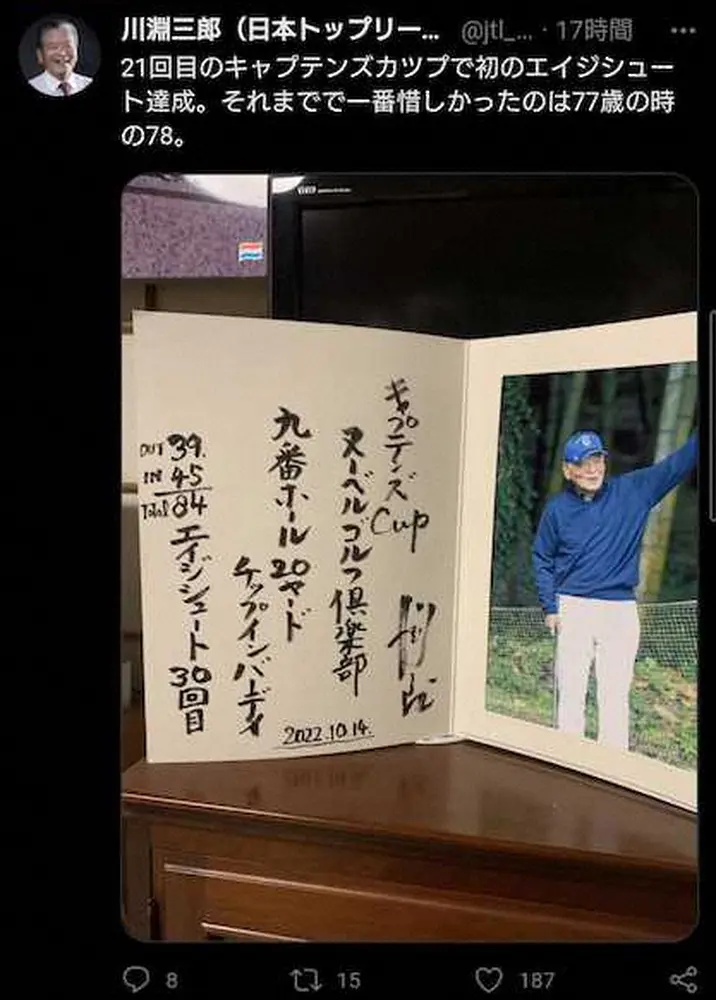 川淵三郎（日本トップリー... @jtl_... · 17時間
21回目のキャプテンズカツプで初のエイジシュー
ト達成。それまでで一番惜しかったのは77歳の時
の78。
キャプテンズCup
ヌーベルゴルフ倶楽部
九番ホール20ヤード
チップインバーディ
OUT 39.
IN 45
Total 84
エイジシュート30回目
2022.10.14.
8
15
187